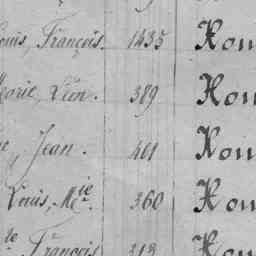 ouis, François. 1435 Hou
Marie, Léon. 389 Hou
Jean. 461 Hou
Louis, M.ie 360 Hou
François 313 Hou